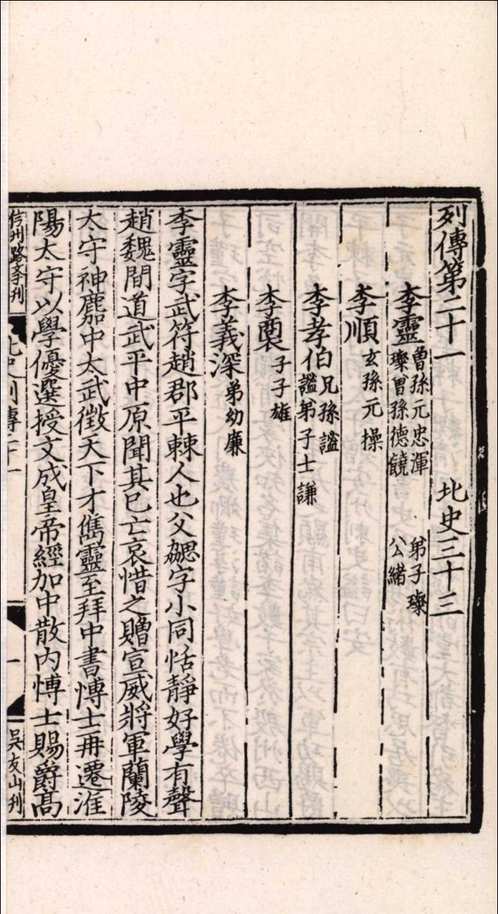 列傳第二十一 北史三十三
李靈 曾孫元忠 渾 弟子璨
璨曾孫德饒 公緒
李順 玄孫元操
李孝伯 兄孫謐
謐弟子士謙
李裔 子子雄
李義深 弟幼廉
李靈字武符趙郡平棘人也父勰字小同恬靜好學有聲
趙魏間道武平中原聞其已亡哀惜之贈宣威將軍蘭陵
太守神䴥中太武徵天下才儁靈至拜中書博士再遷淮
陽太守以學優選授文成皇帝經加中散內博士賜爵高
信州路 刊
北史列傳二十一
一
吳友山刊